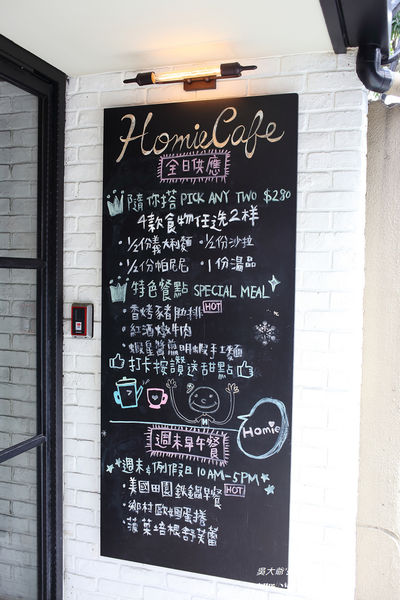 Homie Cafe
全日供應
隨你搭 PICK ANY TWO $280
4款食物任選2樣
·½份義大利麵 ·½份沙拉
·½份帕尼尼 ·1份湯品
特色餐點 SPECIAL MEAL
·香烤豬肋排 HOT
·紅酒燉牛肉
·蝦皇醬煎明蝦手工麵
打卡按讚送甜點
Homie
週末早午餐
週末&例假日 10AM-5PM
·美國田園鉄鍋早餐 HOT
·鄉村歐姆蛋捲
·菠菜培根舒芙蕾
吳大爺